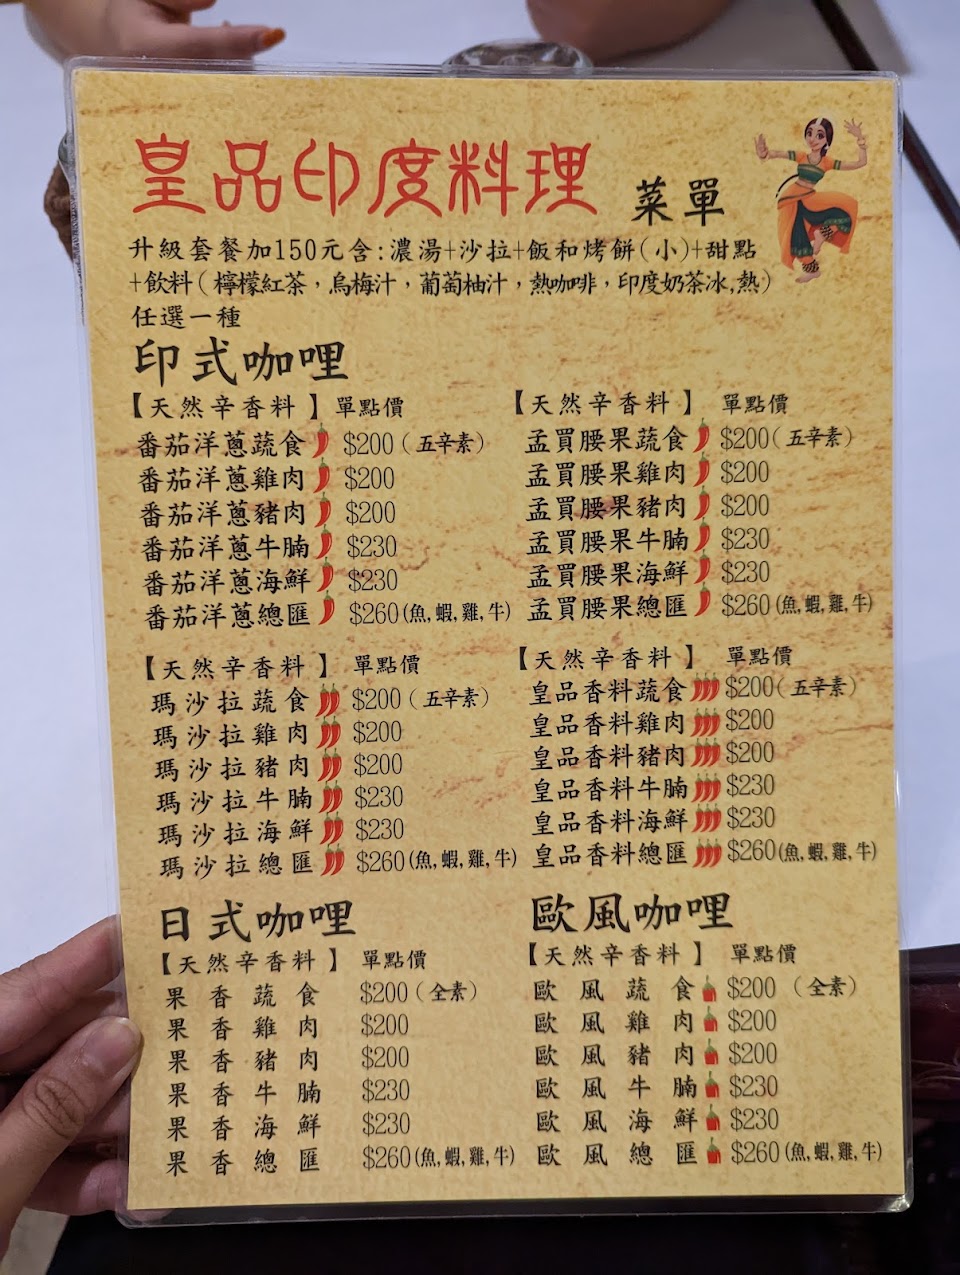 皇品印度料理 菜單
升級套餐加150元含:濃湯+沙拉+飯和烤餅(小)+甜點
+飲料(檸檬紅茶，烏梅汁，葡萄柚汁，熱咖啡，印度奶茶冰,熱)
任選一種
印式咖哩
【天然辛香料】單點價
番茄洋蔥蔬食 $200(五辛素)
番茄洋蔥雞肉 $200
番茄洋蔥豬肉 $200
番茄洋蔥牛腩 $230
番茄洋蔥海鮮 $230
番茄洋蔥總匯 $260(魚,蝦,雞,牛)
【天然辛香料】 單點價
孟買腰果蔬食 $200(五辛素)
孟買腰果雞肉 $200
孟買腰果豬肉 $200
孟買腰果牛腩 $230
孟買腰果海鮮 $230
孟買腰果總匯 $260(魚,蝦,雞,牛)
【天然辛香料】 單點價
瑪沙拉蔬食 $200(五辛素)
瑪沙拉雞肉 $200
瑪沙拉豬肉 $200
瑪沙拉牛腩 $230
瑪沙拉海鮮 $230
瑪沙拉總匯 $260(魚,蝦,雞,牛)
【天然辛香料】 單點價
皇品香料蔬食 $200(五辛素)
皇品香料雞肉 $200
皇品香料豬肉 $200
皇品香料牛腩 $230
皇品香料海鮮 $230
皇品香料總匯 $260(魚,蝦,雞,牛)
日式咖哩
【天然辛香料】 單點價
果香蔬食 $200(全素)
果香雞肉 $200
果香豬肉 $200
果香牛腩 $230
果香海鮮 $230
果香總匯 $260(魚,蝦,雞,牛)
歐風咖哩
【天然辛香料】 單點價
歐風蔬食 $200 (全素)
歐風雞肉 $200
歐風豬肉 $200
歐風牛腩 $230
歐風海鮮 $230
歐風總匯 $260(魚,蝦,雞,牛)